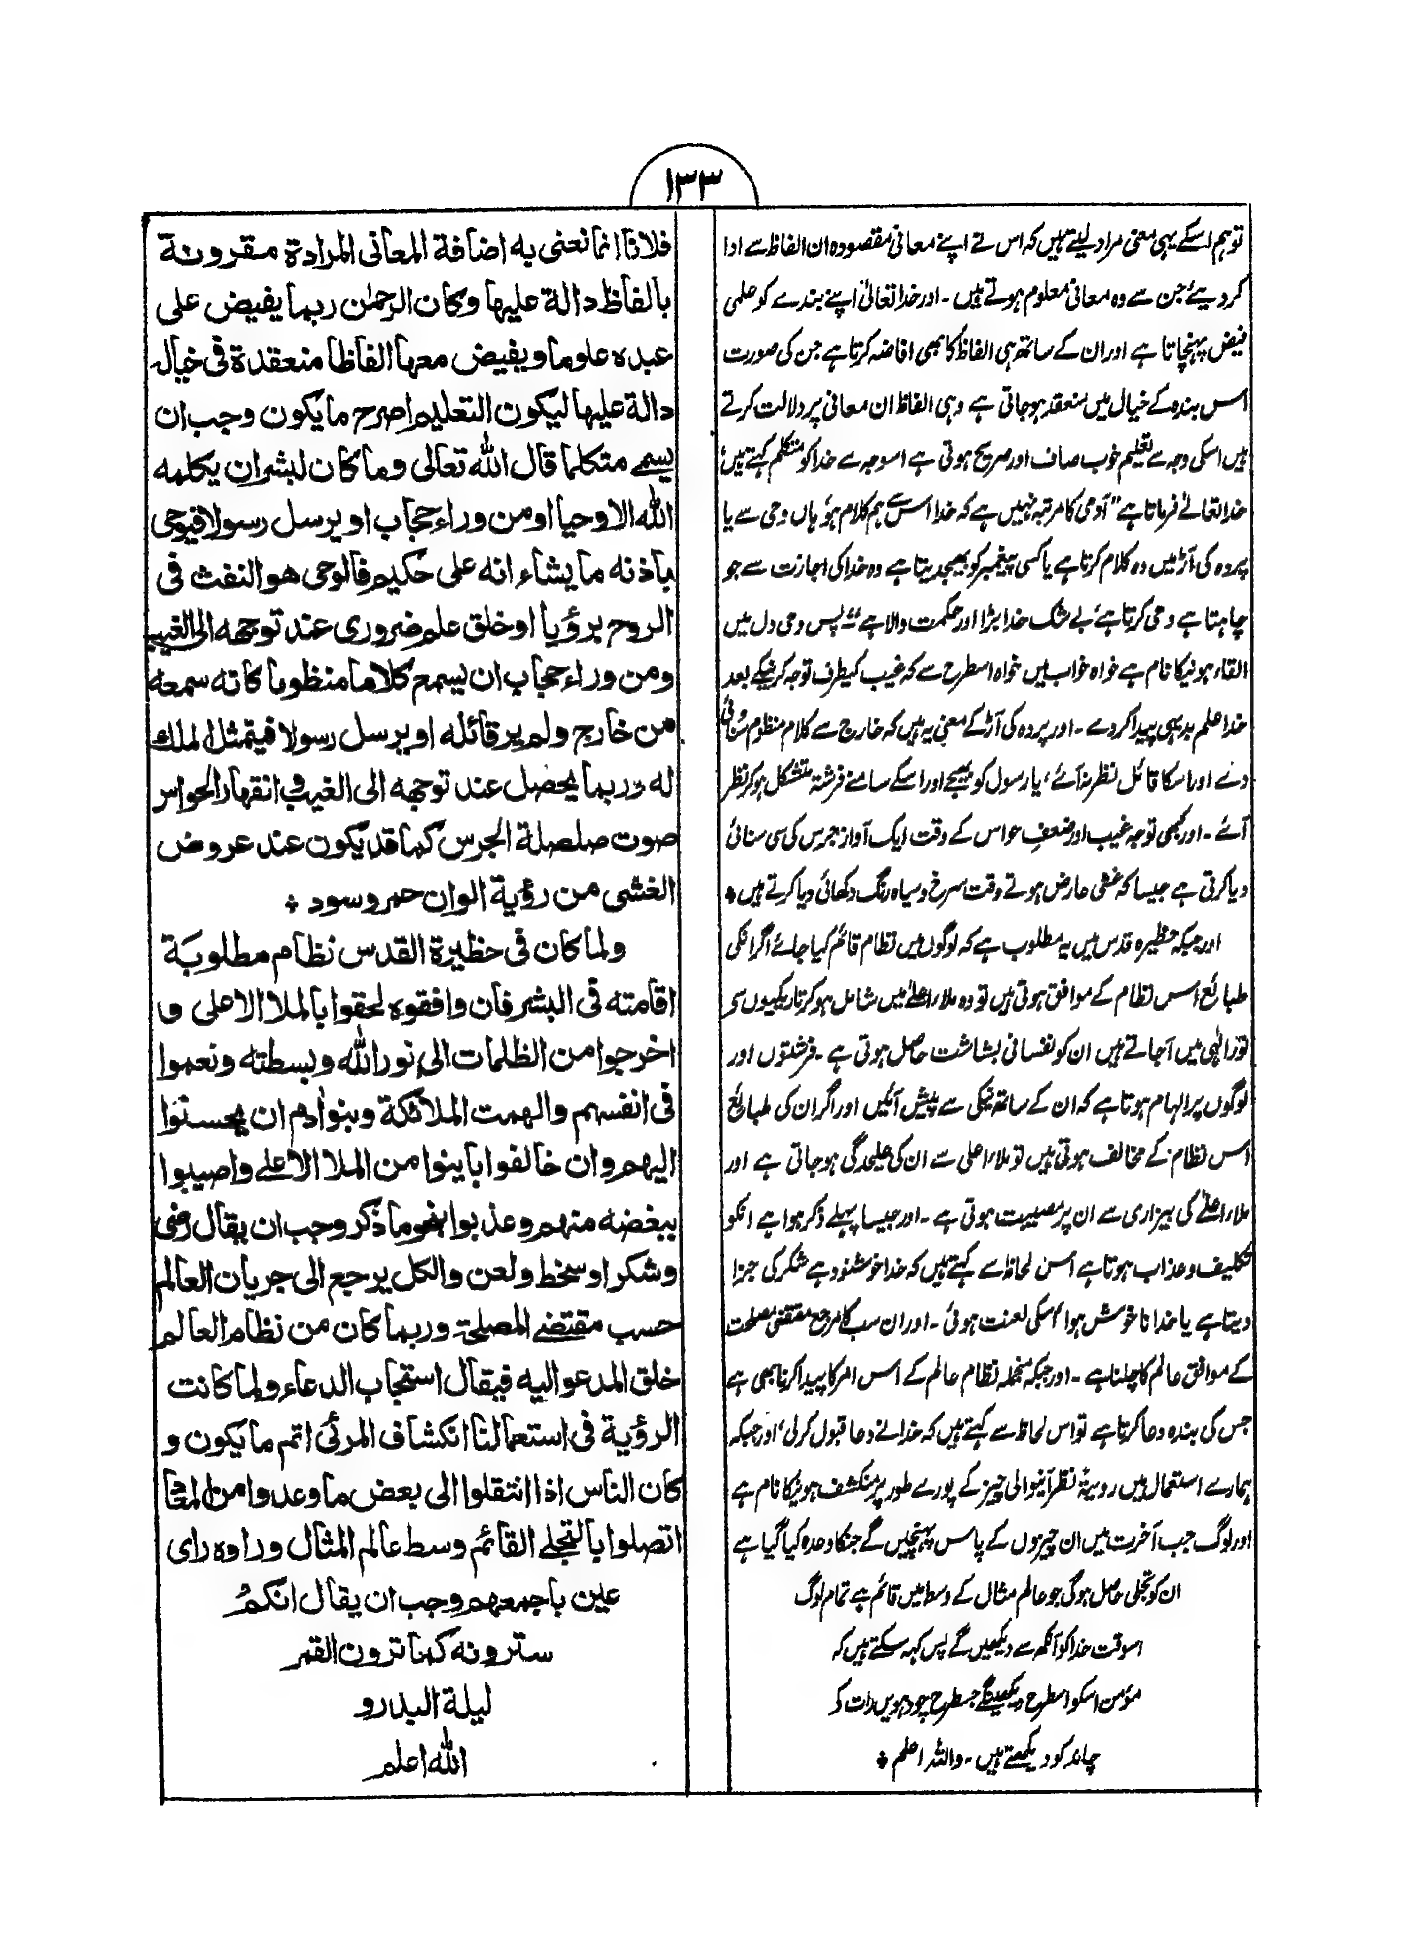 ۱۳۳
تو ہم اسکے یہی معنی مراد لیتے ہیں کہ اس نے اپنے معانی مقصودہ ان الفاظ سے ادا
کر دیئے جن سے وہ معانی معلوم ہوتے ہیں ۔ اور خدا تعالیٰ اپنے بندے کو علمی
فیض پہنچاتا ہے اور ان کے ساتھ ہی الفاظ کا بھی افاضہ کرتا ہے جن کی صورت
اس بندہ کے خیال میں منعقد ہو جاتی ہے وہی الفاظ ان معانی پر دلالت کرتے
ہیں اسکی وجہ سے تعلیم خوب صاف اور صریح ہوتی ہے اسوجہ سے خدا کو متکلم کہتے ہیں
خدا تعالےٰ فرماتا ہے "آدمی کا مرتبہ نہیں ہے کہ خدا اس سے ہم کلام ہو ہاں وحی سے یا
پردہ کی آڑ میں وہ کلام کرتا ہے یا کسی پیغمبر کو بھیجدیتا ہے وہ خدا کی اجازت سے جو
چاہتا ہے وحی کرتا ہے بے شک خدا بڑا اور حکمت والا ہے" پس وحی دل میں
القاء ہونیکا نام ہے خواہ خواب میں خواہ اسطرح سے کہ غیب کیطرف توجہ کرنیکے بعد
خدا علم بدیہی پیدا کر دے ۔ اور پردہ کی آڑ کے معنی یہ ہیں کہ خارج سے کلام منظوم سنائی
دے اور اسکا قائل نظر نہ آئے، یا رسول کو بھیجے اور اسکے سامنے فرشتہ متشکل ہو کر نظر
آئے ۔ اور کبھی توجہ غیب اور ضعف حواس کے وقت ایک آواز جرس کی سی سنائی
دیا کرتی ہے جیسا کہ غشی عارض ہوتے وقت سرخ و سیاہ رنگ دکھائی دیا کرتے ہیں ٭
اور جبکہ حظیرہ قدس میں یہ مطلوب ہے کہ لوگوں میں نظام قائم کیا جائے اگر انکی
طبائع اس نظام کے موافق ہوتی ہیں تو وہ ملاء اعلےٰ میں شامل ہو کر تاریکیوں سے
نور الٰہی میں آجاتے ہیں ان کو نفسانی بشاشت حاصل ہوتی ہے ۔ فرشتوں اور
لوگوں پر الہام ہوتا ہے کہ ان کے ساتھ نیکی سے پیش آئیں اور اگر ان کی طبائع
اس نظام کے مخالف ہوتی ہیں تو ملاء اعلی سے ان کی علیحدگی ہو جاتی ہے اور
ملاء اعلےٰ کی بیزاری سے ان پر مصیبت ہوتی ہے ۔ اور جیسا پہلے ذکر ہوا ہے انکو
تکلیف و عذاب ہوتا ہے اس لحاظ سے کہتے ہیں کہ خدا خوشنود ہے شکر کی جزا
دیتا ہے یا خدا ناخوش ہوا، اسکی لعنت ہوئی ۔ اور ان سب کا مرجع مقتضیٰ مصلحت
کے موافق عالم کا چلنا ہے ۔ اور جبکہ منجملہ نظام عالم کے اس امر کا پیدا کرنا بھی ہے
جس کی بندہ دعا کرتا ہے تو اس لحاظ سے کہتے ہیں کہ خدا نے دعا قبول کر لی، اور جبکہ
ہمارے استعمال میں رویۃ نظر آنیوالی چیز کے پورے طور پر منکشف ہونیکا نام ہے
اور لوگ جب آخرت میں ان چیزوں کے پاس پہنچیں گے جنکا وعدہ کیا گیا ہے
ان کو تجلی حاصل ہوگی جو عالم مثال کے وسط میں قائم ہے تمام لوگ
اسوقت خدا کو آنکھ سے دیکھیں گے پس کہہ سکتے ہیں کہ
مؤمن اسکو اسطرح دیکھینگے جسطرح چودہویں رات کے
چاند کو دیکھتے ہیں ۔ واللہ اعلم ٭
فلانا انما نعنی به اضافة المعانی المرادة مقرونة
بالفاظ دالة عليها وکان الرحمٰن ربما يفيض علی
عبده علوما ويفيض معها الفاظا منعقدة فی خياله
دالة عليها ليکون التعليم اصرح ما يکون وجب ان
يسمے متکلما قال الله تعالی وما کان لبشر ان يکلمه
الله الا وحيا او من وراء حجاب او يرسل رسولا فيوحی
باذنه ما يشاء انه علی حکيم فالوحی هو النفث فی
الروح برؤيا او خلق علم ضروری عند توجهه الی الغيب
ومن وراء حجاب ان يسمع کلاما منظوما کانه سمعه
من خارج ولم ير قائله او يرسل رسولا فيتمثل الملک
له وربما يحصل عند توجهه الی الغيب وانقهار الحواس
صوت صلصلة الجرس کما قد يکون عند عروض
الغشی من رؤية الوان حمر وسود ٭
ولما کان فی حظيرة القدس نظام مطلوبة
اقامته فی البشر فان وافقوه لحقوا بالملا الاعلی و
اخرجوا من الظلمات الی نور الله وبسطته ونعموا
فی انفسهم والهمت الملائکة وبنو آدم ان يحسنوا
اليهم وان خالفوا باينوا من الملا الاعلے واصيبوا
ببغضه منهم وعذبوا بنحو ما ذکر وجب ان يقال رضی
وشکر او سخط ولعن والکل يرجع الی جريان العالم
حسب مقتضے المصلحة وربما کان من نظام العالم
خلق المدعو اليه فيقال استجاب الدعاء ولما کانت
الرؤية فی استعمالنا انکشاف المرئی اتم ما يکون و
کان الناس اذا انتقلوا الی بعض ما وعدوا من المعاد
اتصلوا بالتجلے القائم وسط عالم المثال وراوه رای
عين باجمعهم وجب ان يقال انکم
سترونه کما ترون القمر
ليلة البدر و
الله اعلم